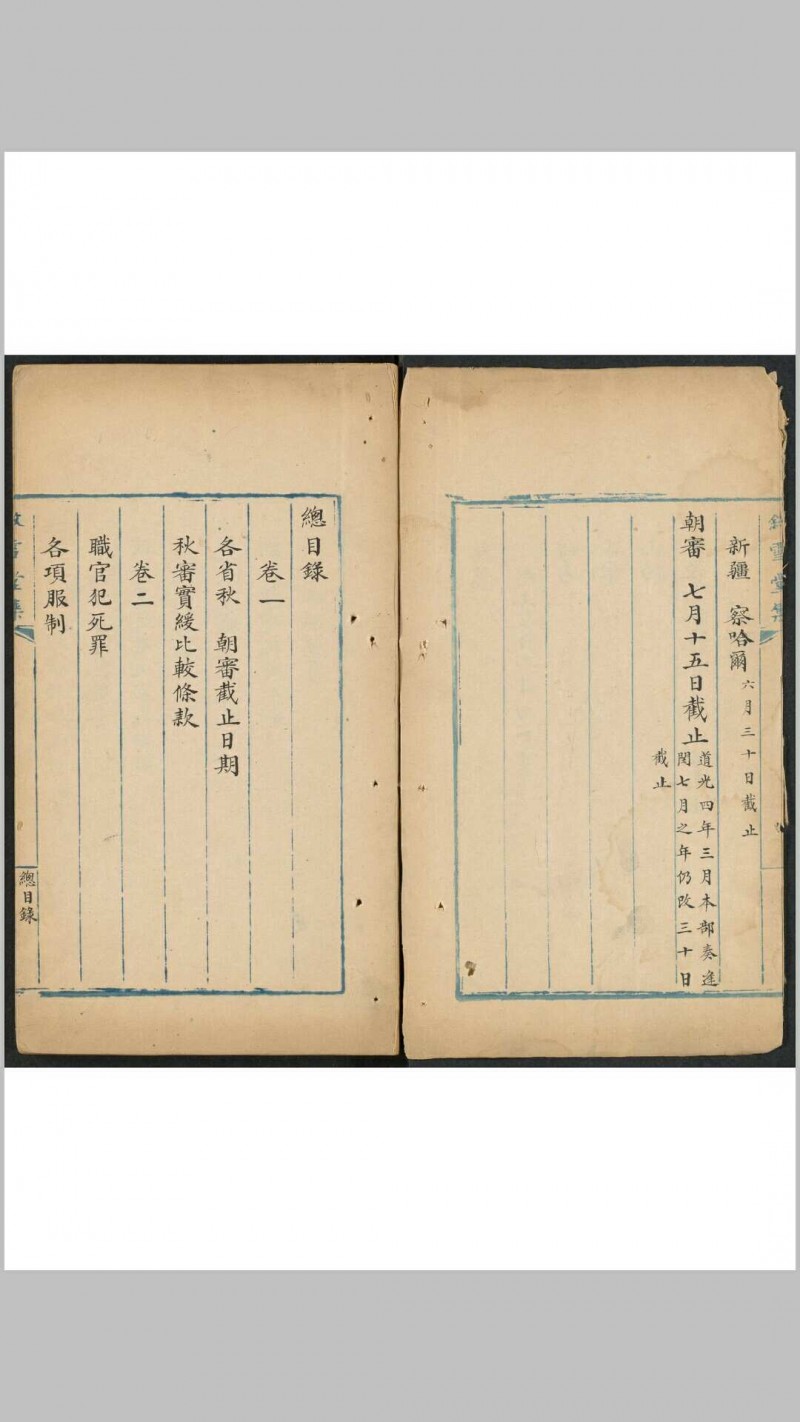 新疆 察哈爾 六月三十日截止
朝審 七月十五日截止 道光四年三月本部奏進
閏七月之年仍改三十日
截止
總目錄
卷一
各省秋 朝審截止日期
秋審實緩比較條款
卷二
職官犯死罪
各項服制
總目錄